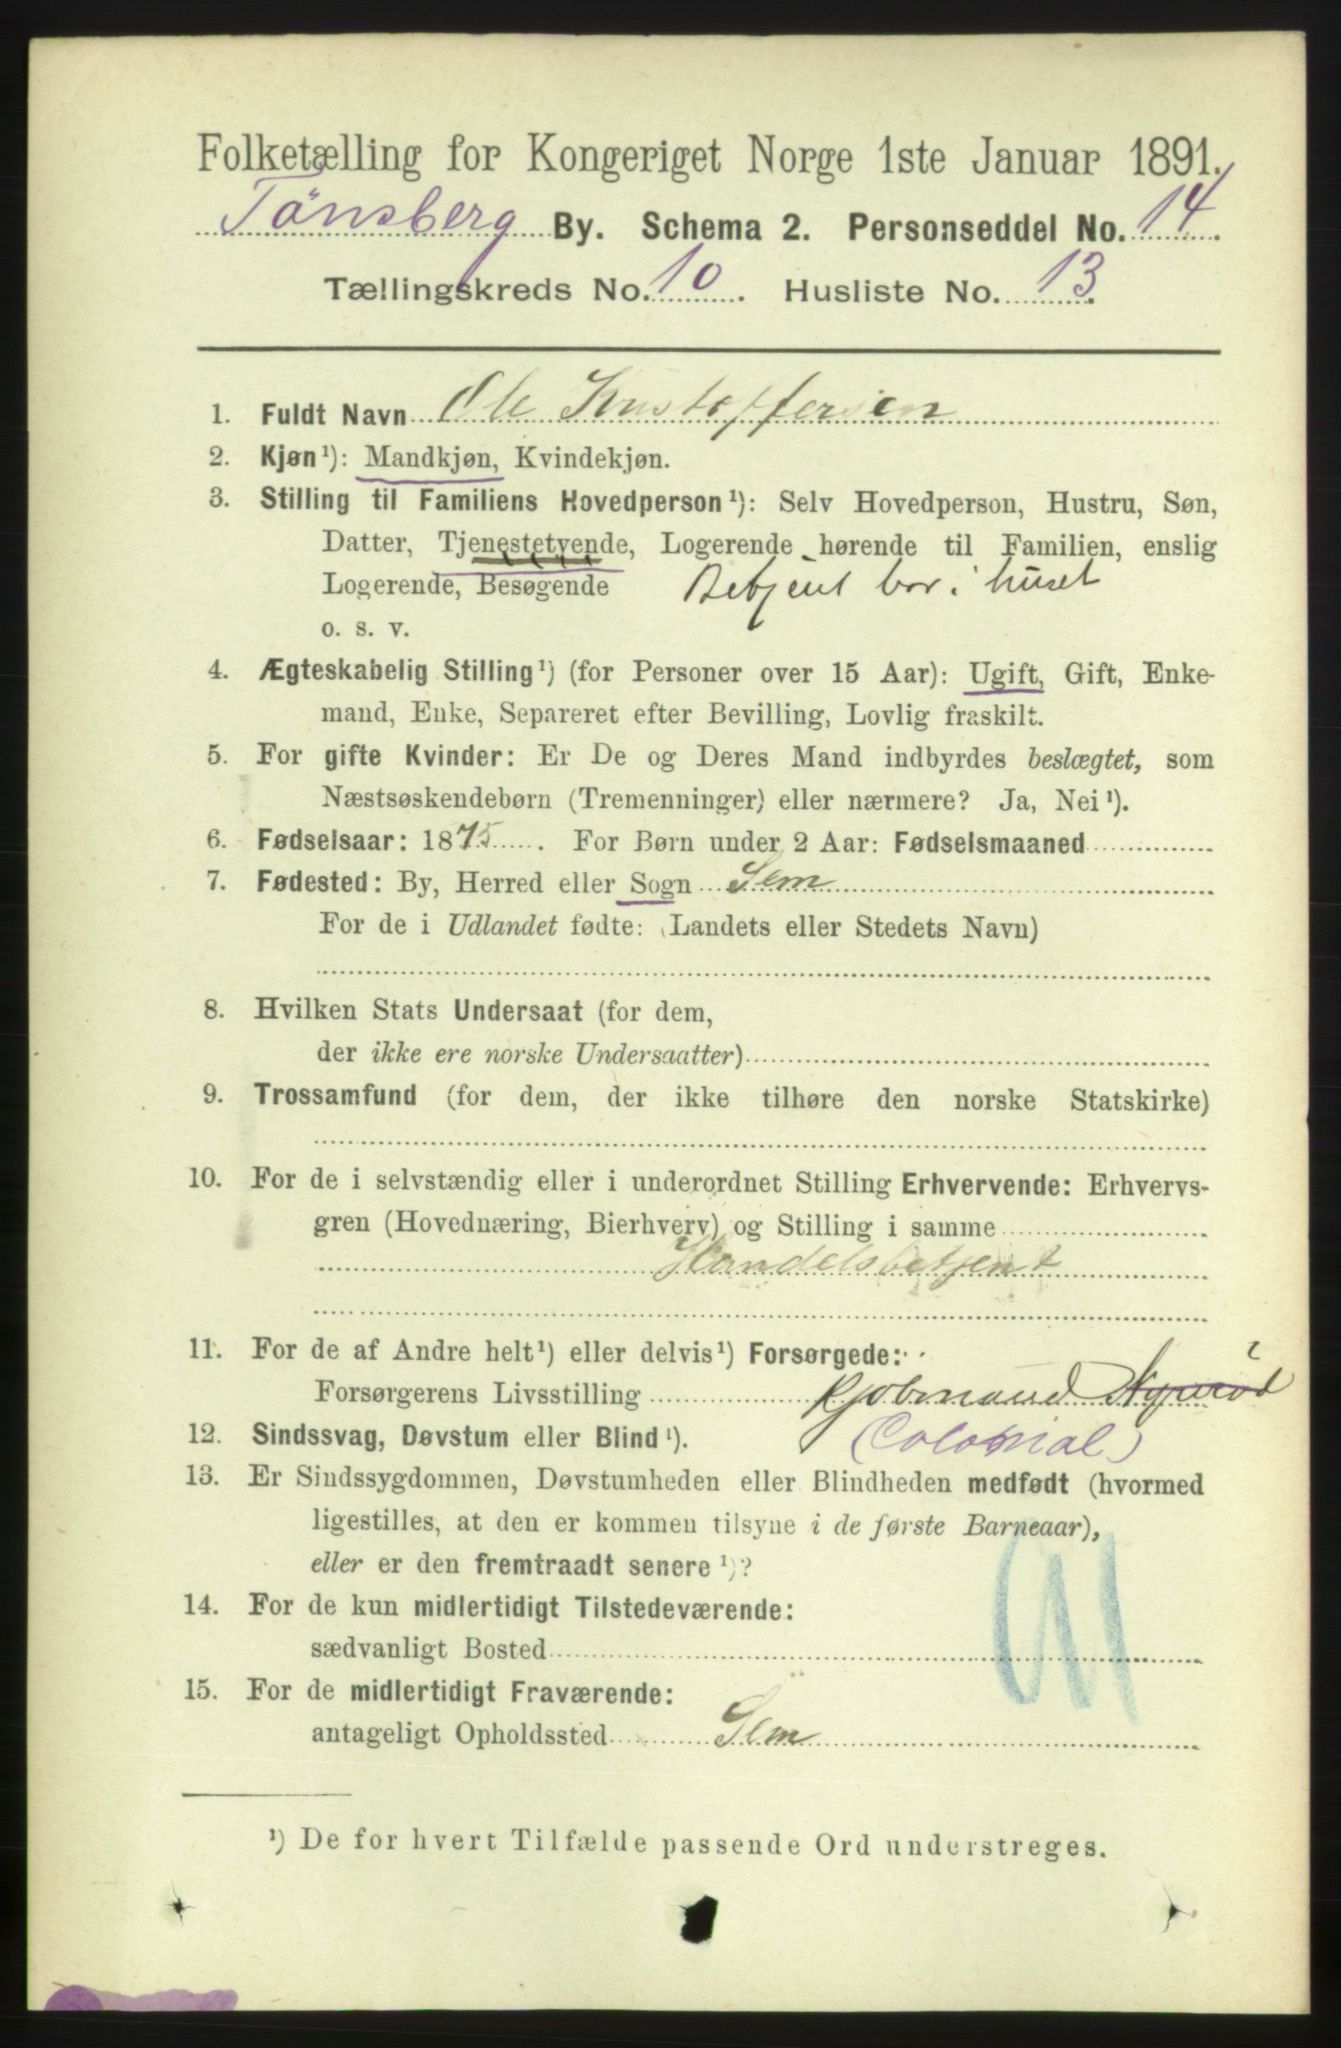 Folketælling for Kongeriget Norge 1ste Januar 1891.
Tönsberg By. Schema 2. Personseddel No. 14
Tællingskreds No. 10. Husliste No. 13.
1. Fuldt Navn Ole Kristoffersen
2. Kjøn¹): Mandkjøn, Kvindekjøn.
3. Stilling til Familiens Hovedperson¹): Selv Hovedperson, Hustru, Søn,
Datter, Tjenestetyende, Logerende hørende til Familien, enslig
Logerende, Besøgende Betjent bor i huset
o. s. v.
4. Ægteskabelig Stilling¹) (for Personer over 15 Aar): Ugift, Gift, Enke-
mand, Enke, Separeret efter Bevilling, Lovlig fraskilt.
5. For gifte Kvinder: Er De og Deres Mand indbyrdes beslægtet, som
Næstsøskendebørn (Tremenninger) eller nærmere? Ja, Nei¹).
6. Fødselsaar: 1875. For Børn under 2 Aar: Fødselsmaaned
7. Fødested: By, Herred eller Sogn Sem
For de i Udlandet fødte: (Landets eller Stedets Navn)
8. Hvilken Stats Undersaat (for dem,
der ikke ere norske Undersaatter)
9. Trossamfund (for dem, der ikke tilhøre den norske Statskirke)
10. For de i selvstændig eller i underordnet Stilling Erhvervende: Erhvervs-
gren (Hovednæring, Bierhverv) og Stilling i samme
Handelsbetjent
11. For de af Andre helt¹) eller delvis¹) Forsørgede:
Forsørgerens Livsstilling Kjøbmand
12. Sindssvag, Døvstum eller Blind¹). (Colonial)
13. Er Sindssygdommen, Døvstumheden eller Blindheden medfødt (hvormed
ligestilles, at den er kommen tilsyne i de første Barneaar),
eller er den fremtraadt senere¹)?
14. For de kun midlertidigt Tilstedeværende:
sædvanligt Bosted
15. For de midlertidigt Fraværende:
antageligt Opholdssted Sem
¹) De for hvert Tilfælde passende Ord understreges.